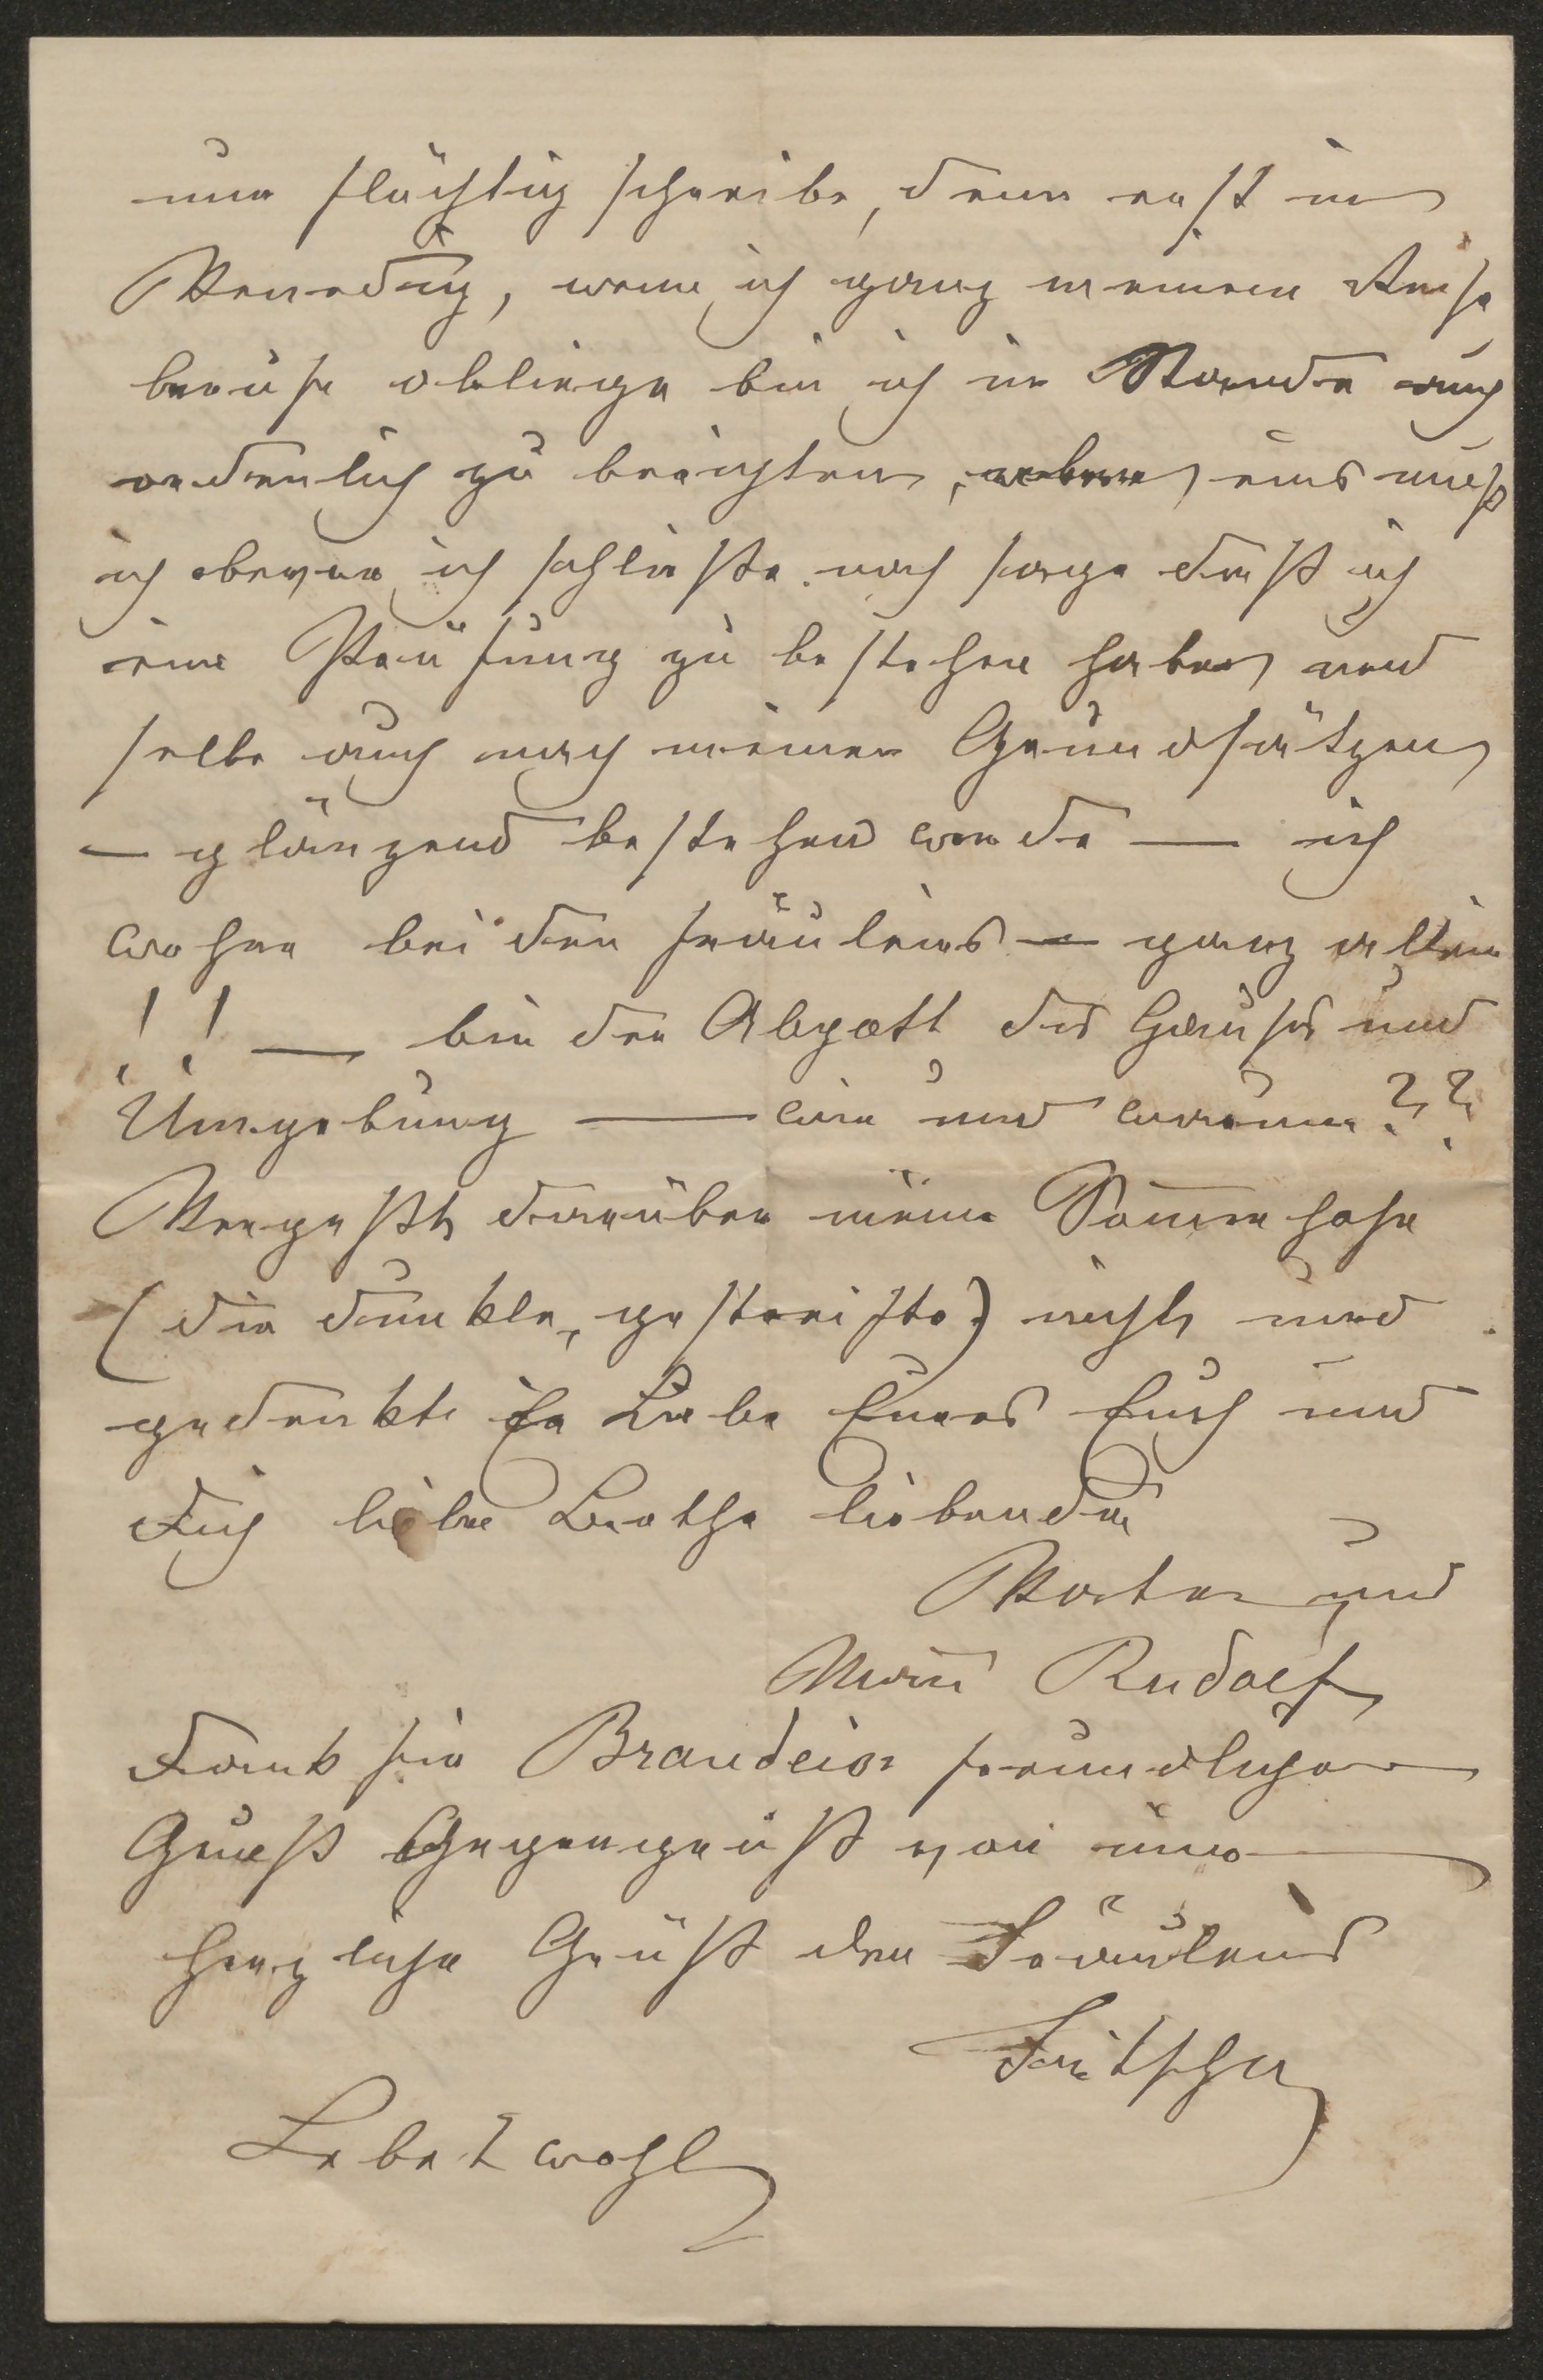 nur flüchtig schreibe, denn erst in
Venedig, wenn ich ganz meinem Reise
berufe obliege bin ich im Stande auch
ordentlich zu berichten, eins muß
ich bevor ich schließe noch sagen daß ich
eine Prüfung zu bestehen habe und
selbe auch nach meinen Grundsätzen
— glänzend bestehen werde — ich
wohne bei den Fräuleins — ganz allein
!! — bin der Abgott des Hauses und
Umgebung — wie und warum??
Vergeßt darüber meine Sommerhose
(die dunkle, gestreifte) nicht und
gedenkt in Liebe Eures Euch und
Dich liebe Berthe liebenden
Vater und
Mann Rudolf
Dank für Brandeis freundlichen
Gruß Gegengruß von uns
Herzliche Grüße den Fräuleins
Fritsche
Lebet wohl